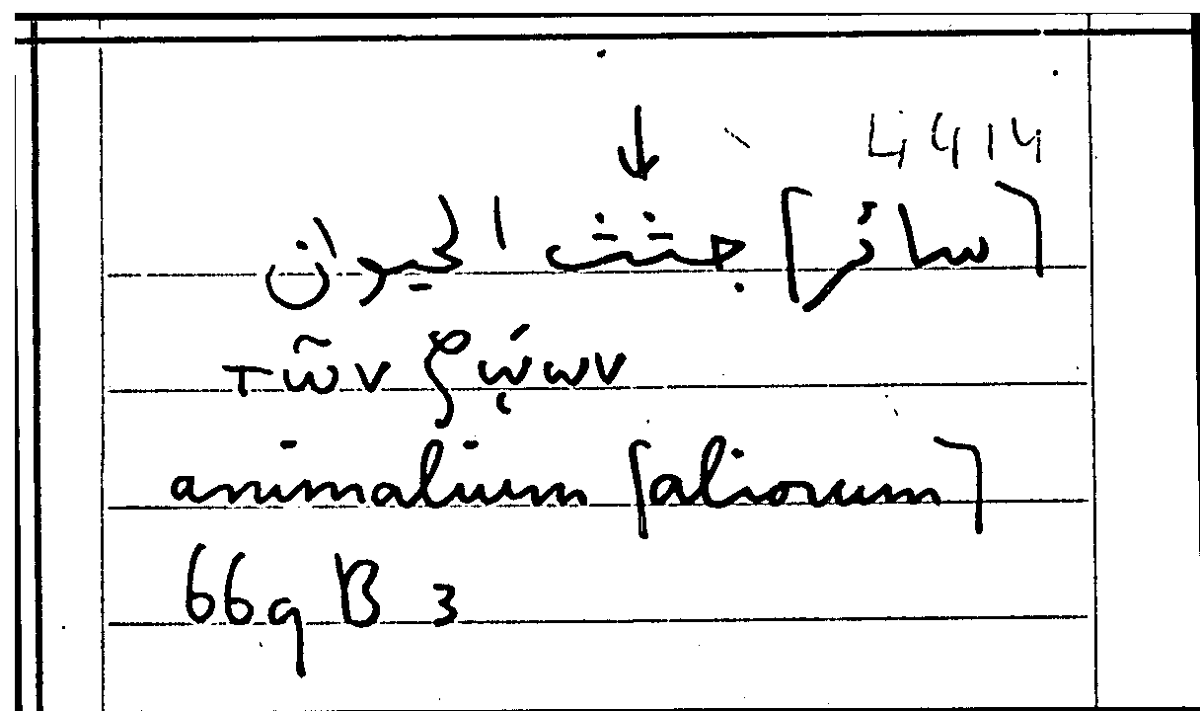 4414
[سائر] جثث الحيوان
τῶν ζῴων
animalium [aliorum]
669 B 3